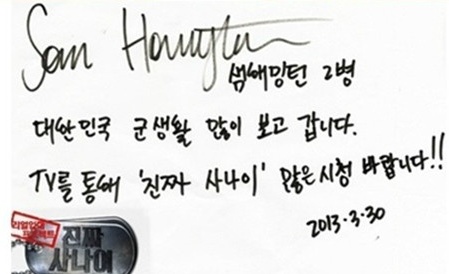 Sam Hamington
샘해밍턴 2병
대한민국 군생활 많이 보고 갑니다.
TV를 통해 '진짜 사나이' 많은 시청 바랍니다!!
2013.3.30
리얼입대
프로젝트
진짜
사나이